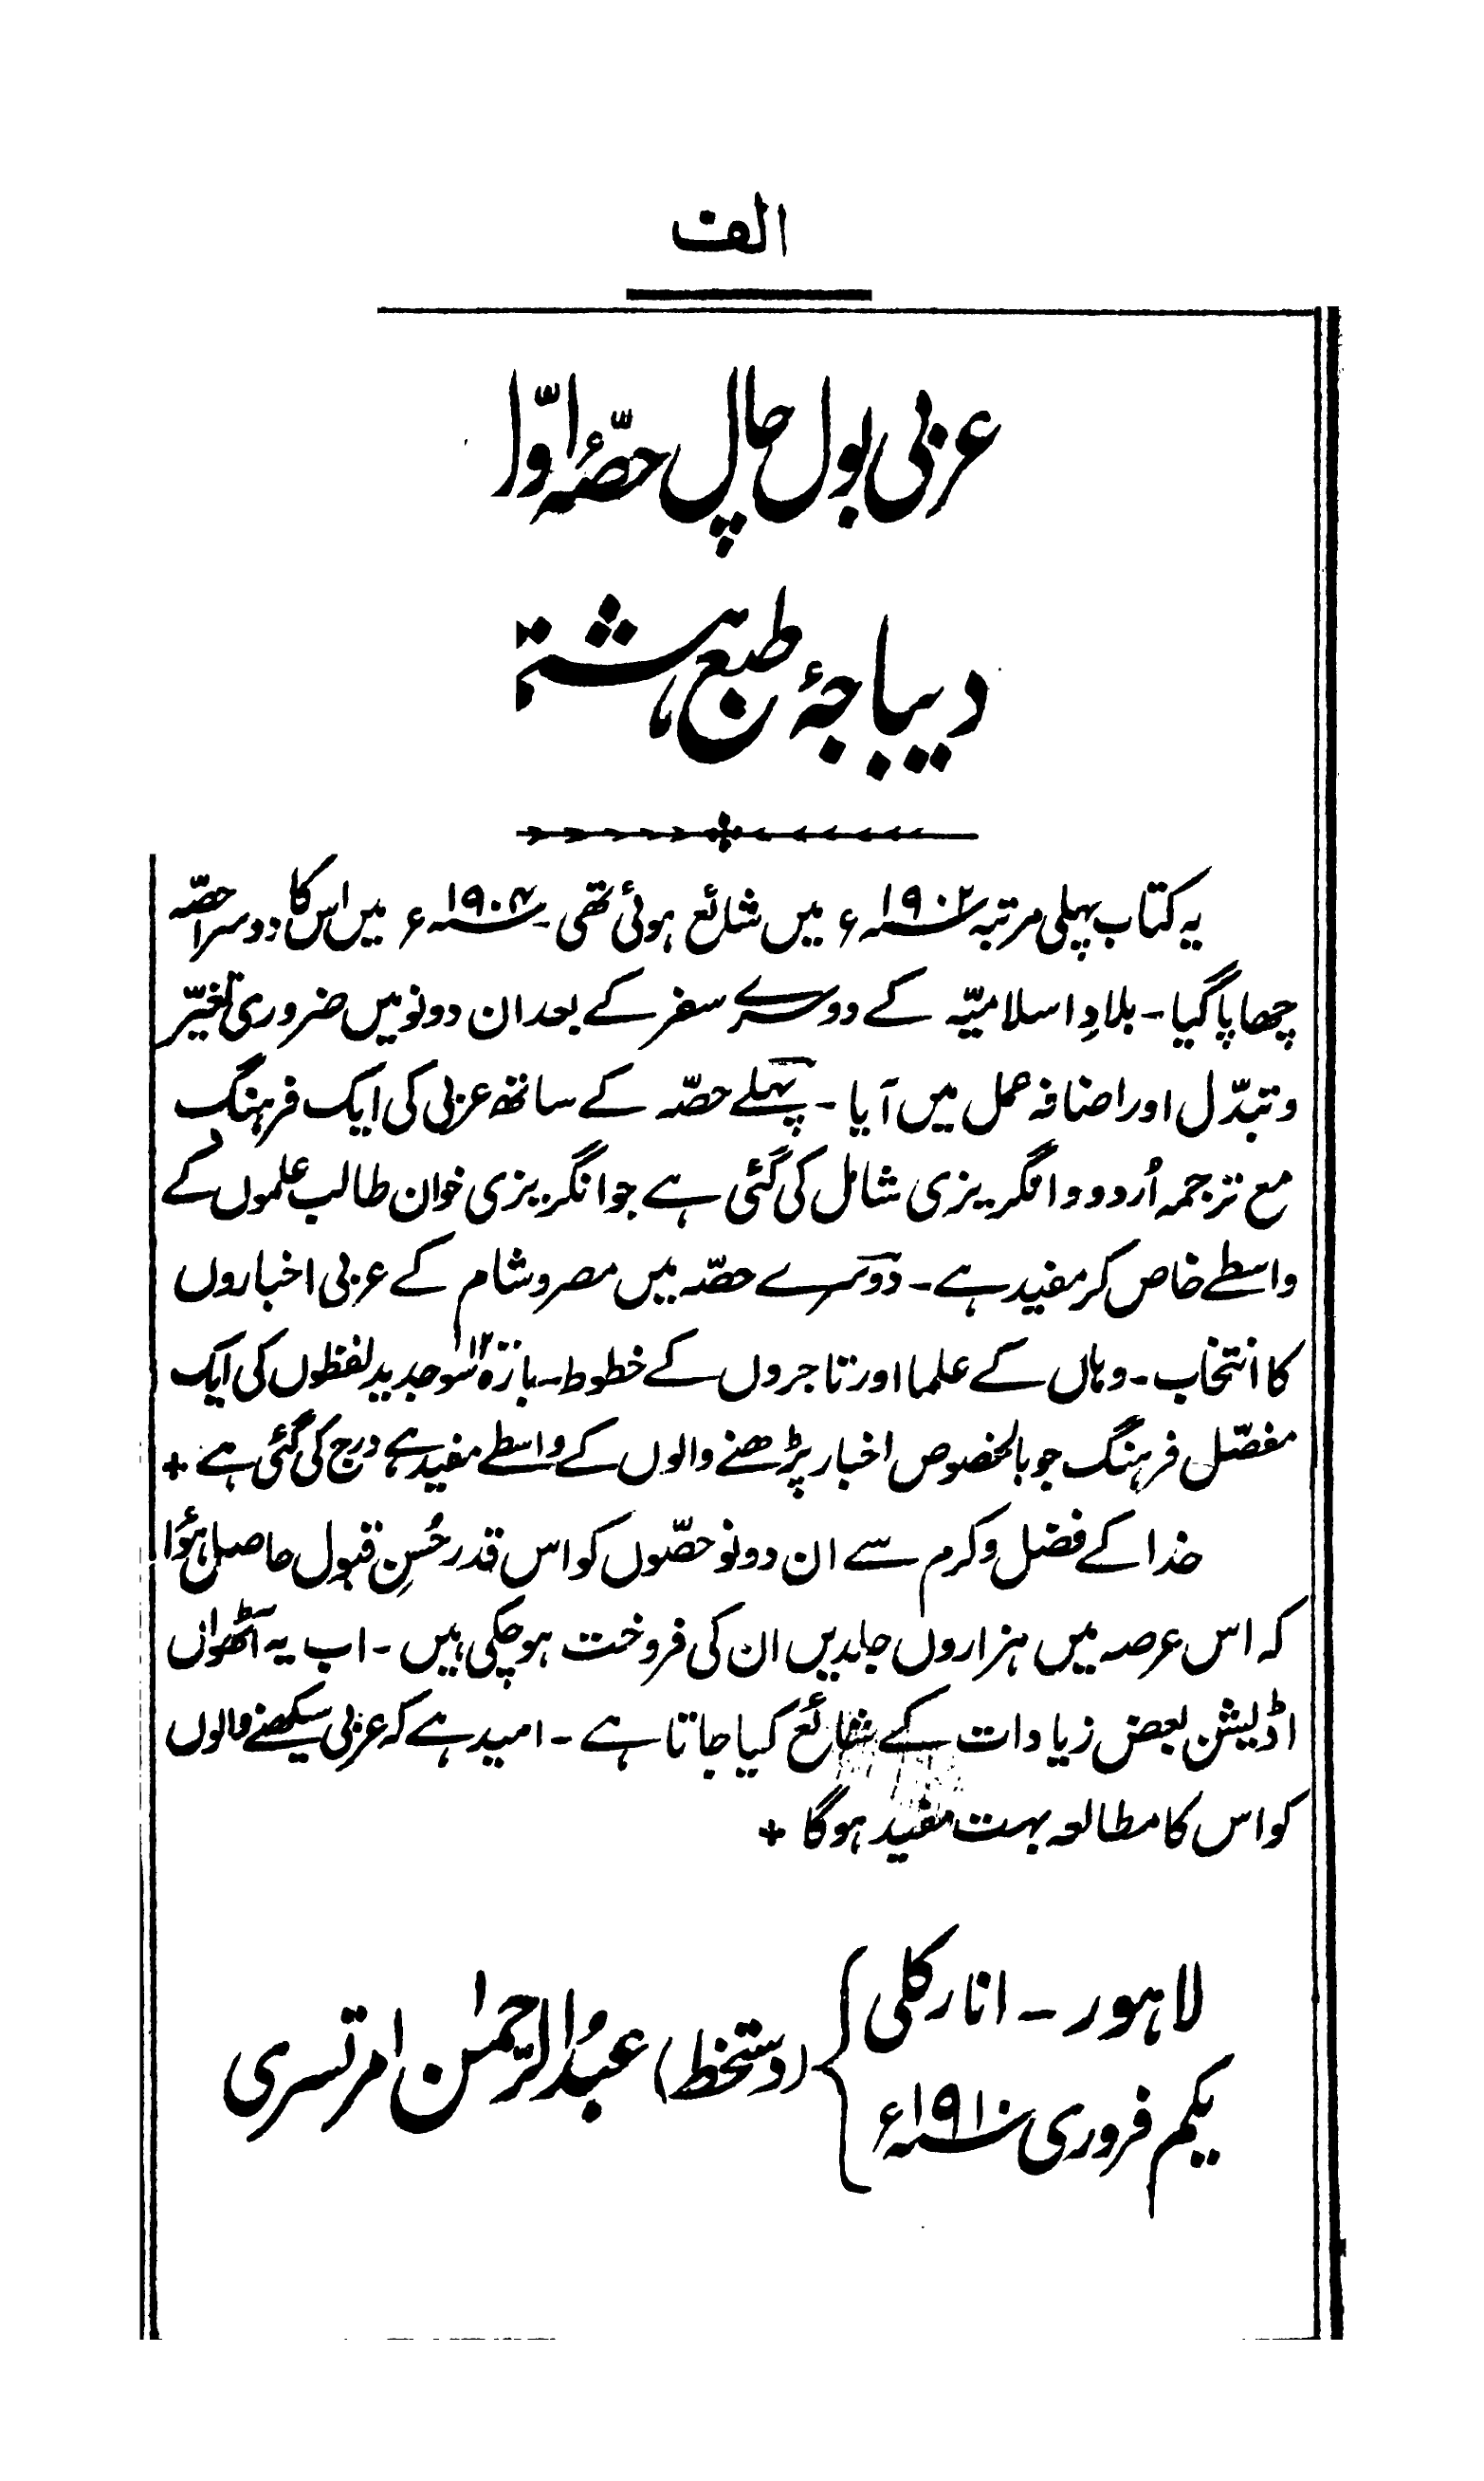 الف
عربی بول چال حصّۂ اوّل
دیباچۂ طبع ہشتم
یہ کتاب پہلی مرتبہ ۱۹۰۲ء میں شائع ہوئی تھی۔ ۱۹۰۴ء میں اس کا دوسرا حصّہ
چھاپا گیا۔ بلادِ اسلامیّہ کے دوسرے سفر کے بعد ان دونو میں ضروری تغیّر
و تبدّل اور اضافہ عمل میں آیا۔ پہلے حصّہ کے ساتھ عربی کی ایک فرہنگ
مع ترجمہ اُردو و انگریزی شامل کی گئی ہے جو انگریزی خوان طالب علموں کے
واسطے خاص کر مفید ہے۔ دوسرے حصّہ میں مصر و شام کے عربی اخباروں
کا انتخاب۔ وہاں کے علما اور تاجروں کے خطوط۔ سو جدید لفظوں کی ایک
مفصّل فرہنگ جو بالخصوص اخبار پڑھنے والوں کے واسطے مفید ہے درج کی گئی ہے +
خدا کے فضل و کرم سے ان دونو حصّوں کو اس قدر حُسنِ قبول حاصل ہؤا
کہ اس عرصہ میں ہزاروں جلدیں ان کی فروخت ہو چکی ہیں۔ اب یہ آٹھواں
اڈیشن بعض زیادات کے شائع کیا جاتا ہے۔ امید ہے کہ عربی سیکھنے والوں
کو اس کا مطالعہ بہت مفید ہوگا +
لاہور۔ انارکلی
یکم فروری ۱۹۱۰ء
(دستخط) عبدُالرّحمٰن امرتسری